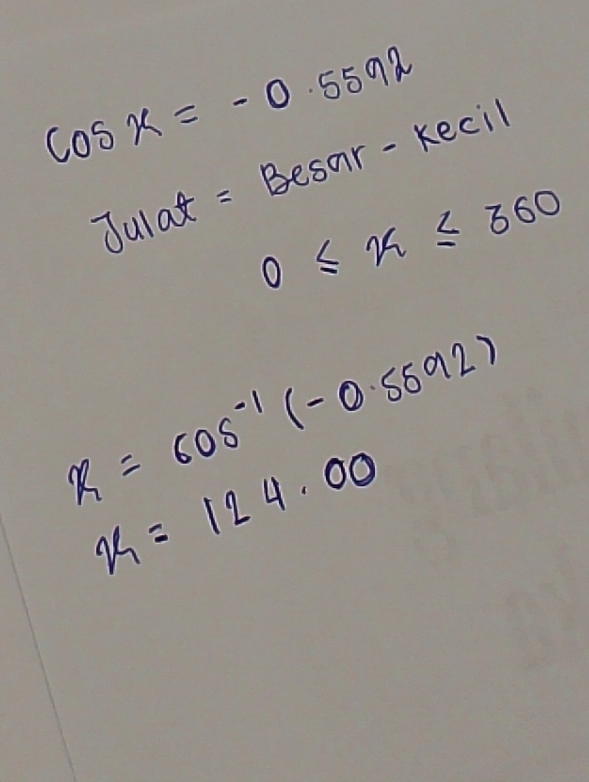 Cos x = - 0.5592
Julat = Besar - kecil
0 ≤ x ≤ 360
x = cos⁻¹ (- 0.5592)
x = 124.00